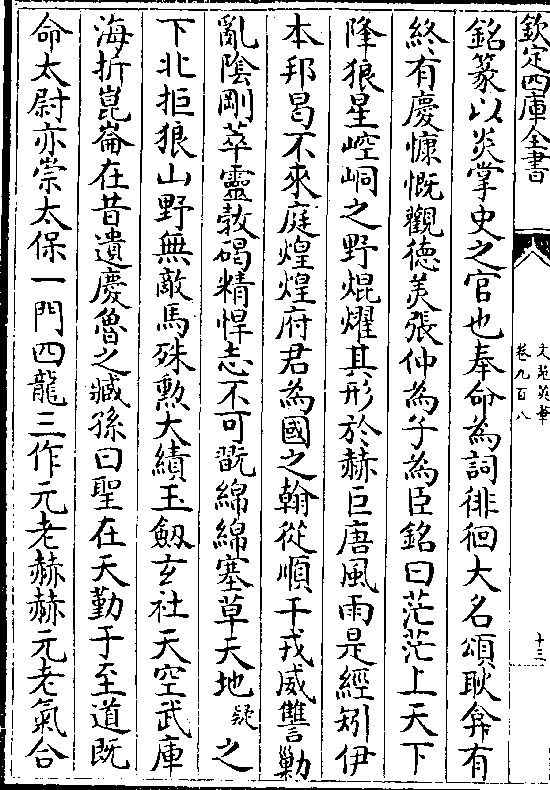 欽定四庫全書
文苑英華
卷九百八
十三
銘篆以炎掌史之官也奉命為詞徘徊大名頌耿弇有
終有慶慷慨觀德美張仲為子為臣銘曰茫茫上天下
降狼星崆峒之野焜燿其形於赫巨唐風雨是經矧伊
本邦曷不來庭煌煌府君為國之翰從順干戎威讐勦
亂陰剛萃靈敦碣精悍志不可翫綿綿塞草天地疑之
下北拒狼山野無敵馬殊勲大績玉劔玄社天空武庫
海折崑崙在昔遺慶魯之臧孫曰聖在天勤于至道既
命太尉亦崇太保一門四龍三作元老赫赫元老氣合